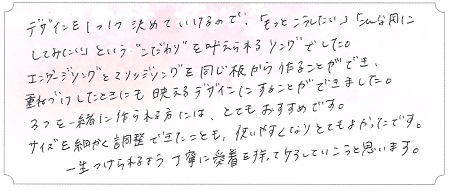 デザインを1つ1つ決めていけるので、「もっとこうしたい。」「こんな風に
してみたい」という"こだわり"を叶えられるリングでした。
エンゲージリングとマリッジリングを同じ板から作ることができ、
重ねづけしたときにも映えるデザインにすることができました。
3つを一緒に作られる方には、とてもおすすめです。
サイズを細かく調整できたことも、使いやすくなりとてもよかったです。
一生つけられるよう丁寧に愛着を持ってケアしていこうと思います。